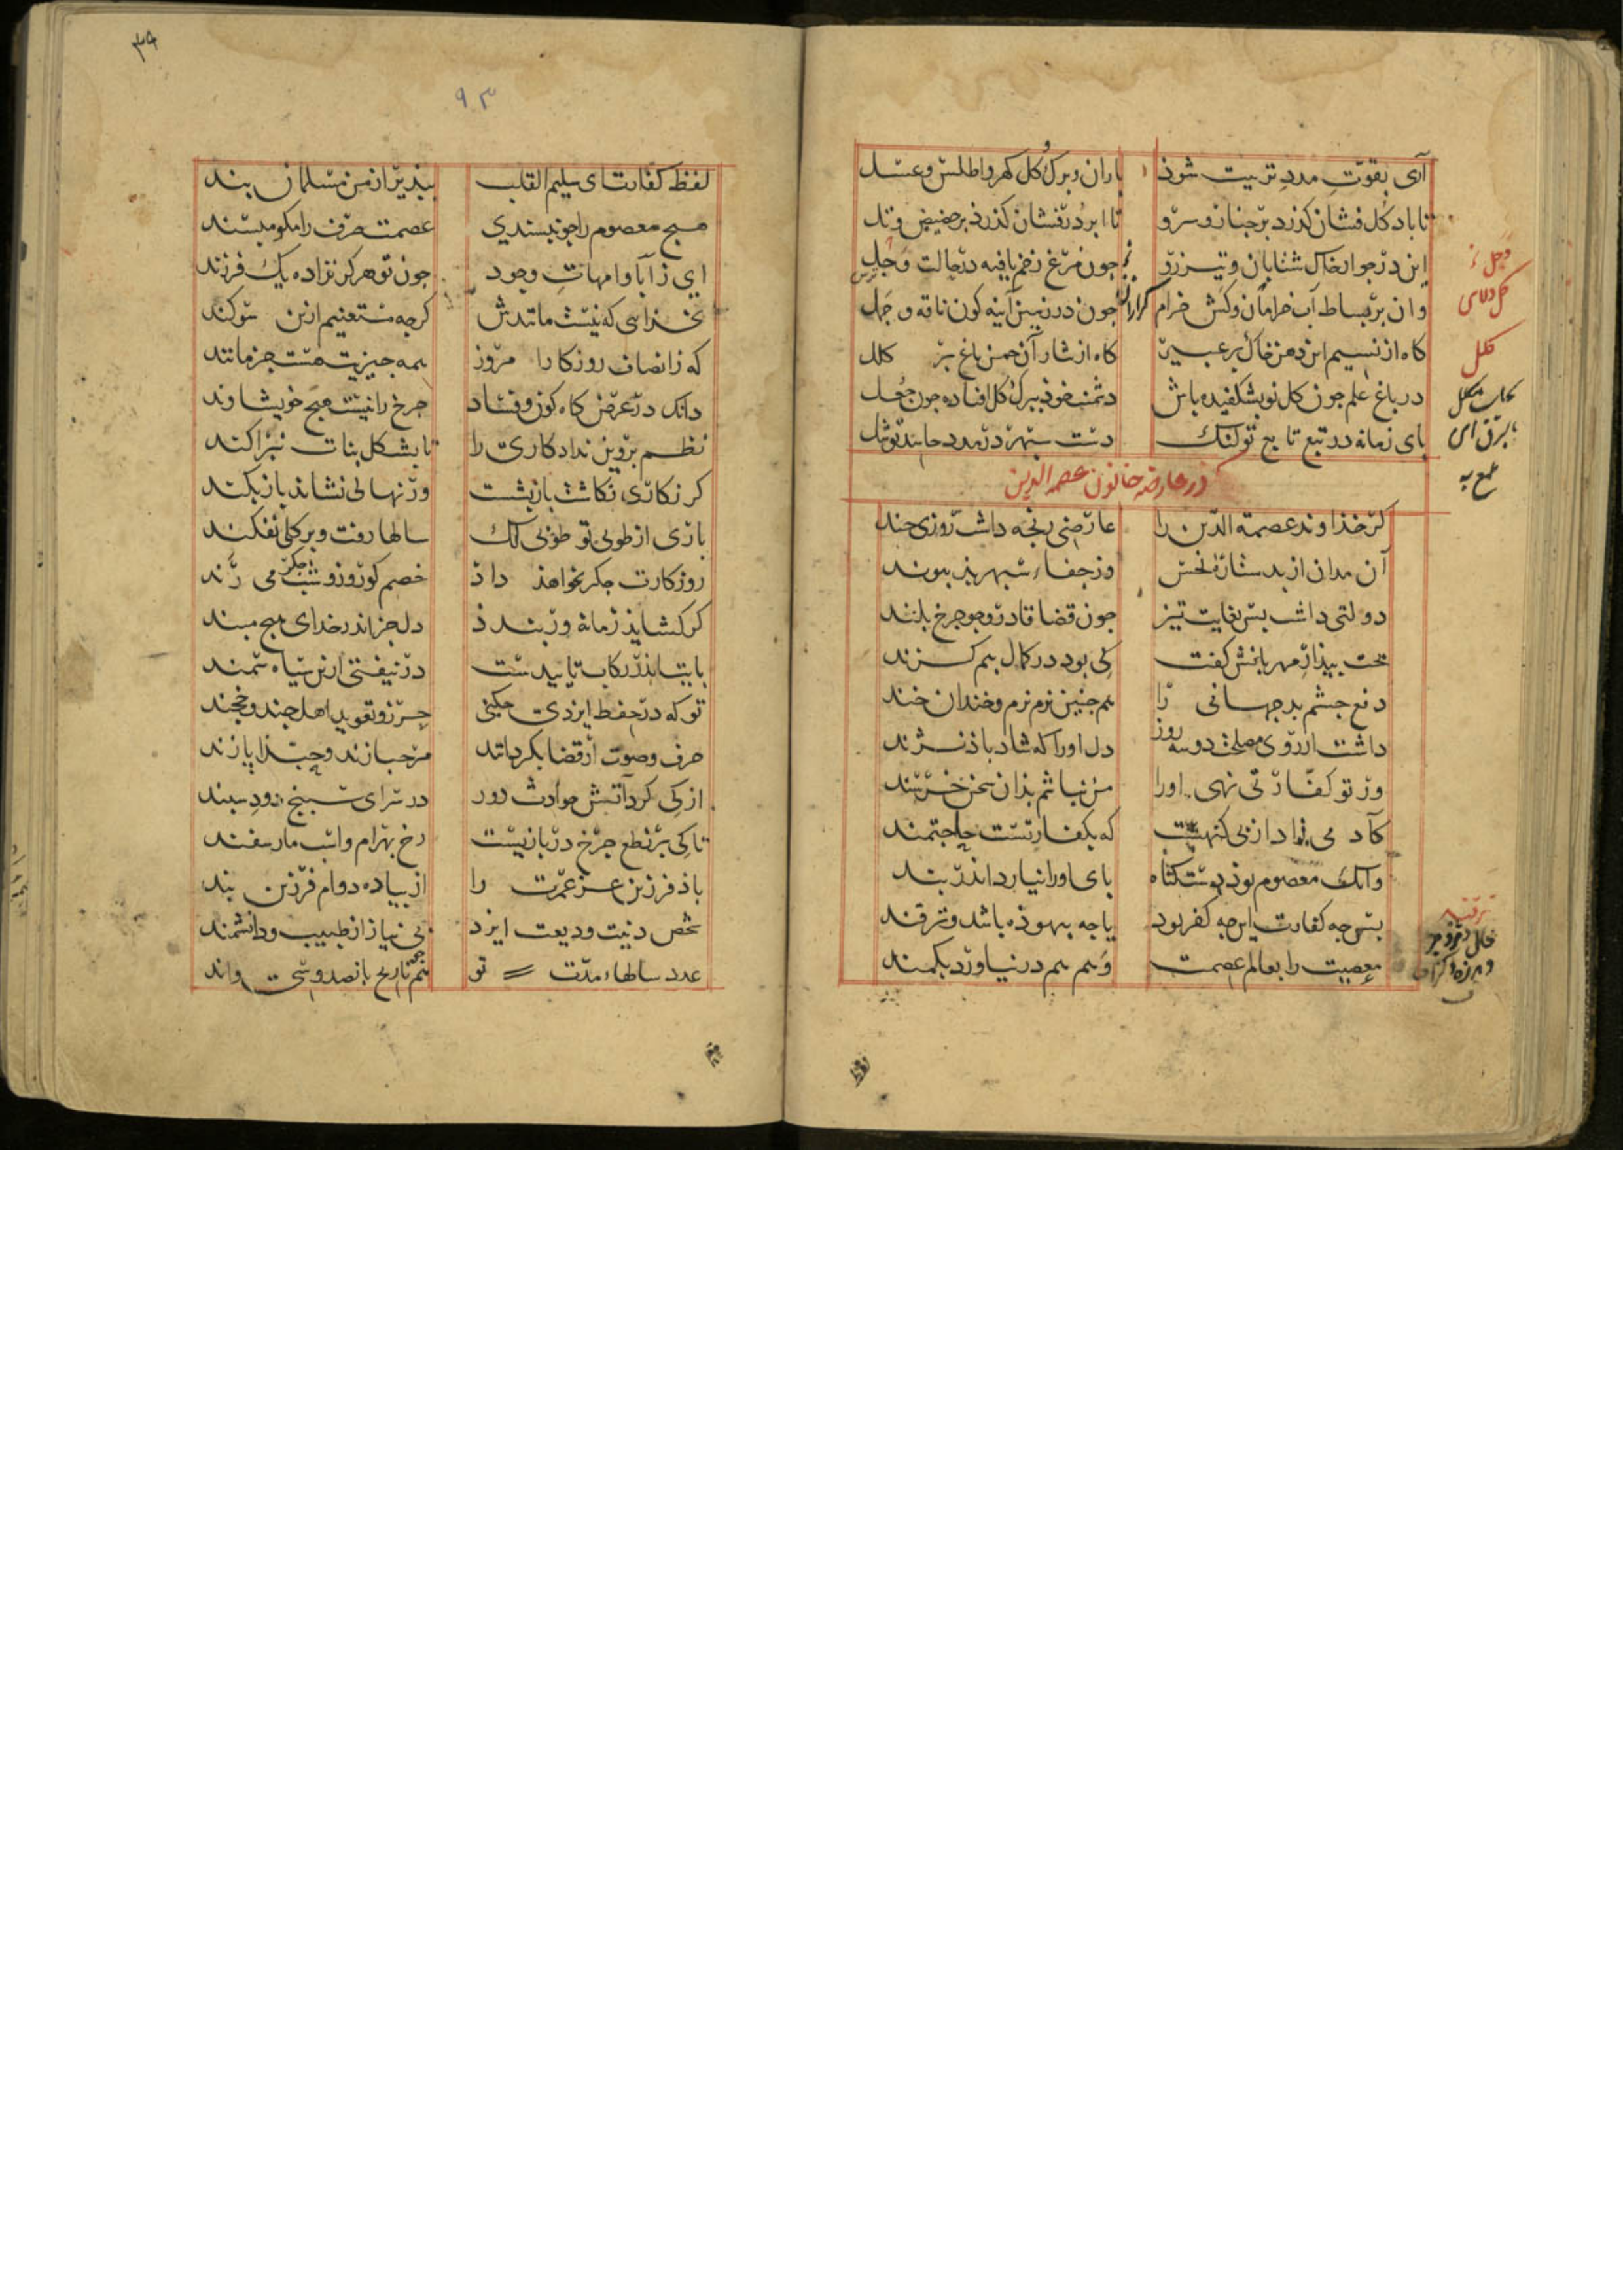 آری بقوّت مدد تربیت شوذ
باران و برک کل کهر و اطلس و عسل
تا باد کل فشان کذرد بر چنار و سرو
تا ابر درفشان کذرذ بر حضیض و تل
این در جوار خاک شتابان و تیزرو
چون مرغ زخم یافته در حالت وجل
وان بر بساط آب خرامان و کش خرام
چون در زمین آینه کون ناقه و جمل
کاه از نسیم این دهن خاک پر عبیر
کاه از نثار آن چمن باغ پر کلل
در باغ علم چون کل نو بشکفیده باش
دشمنت خوذ ببرک کل افتاده چون جعل
بای زمانه در تبع تابع تو لنک
دست سپهر در مدد حاسد تو شل
در عارضه خاتون عصمه الدین
کر خذاوند عصمة الدین را
عارضی رنجه داشت روزی چند
آن مدان از بد ستاره نحس
وز جفاء سپهر بذ پیوند
دولتی داشت بس بغایت تیز
چون قضا قادر و چو چرخ بلند
بخت بیذار مهربانش کفت
کی بود در کمال بیم کزند
دفع چشم بد جهانی را
هم چنین نرم نرم و خندان خند
داشت از روی مصلحت دو سه روز
دل او را که شاد باذ نژند
وز تو کفارتی نهی او را
من نباشم بذان سخن خرسند
که بکفارتست حاجتمند
وانک معصوم بوذ دست کناه
بای او را نیارد اندر بند
بس چه کفارت این چه کفر بود
یا چه بیهوذه باشد و ترفند
معصیت را بعالم عصمت
وهم هم در نیاورد بکمند
وجل
کل
لفظ کفارت ای سلیم القلب
ببذیر از من مسلمان بند
هیج معصوم را چو نبسندی
عصمت صرف را مکو مبسند
ای ز آبا و امهات وجود
چون تو هرکز نزاده یک فرزند
بخذایی که نیست مانندش
کرچه مستغنیم ازین سوکند
که ز انصاف روزکار امروز
همه چیزیت هست جز مانند
دانک در عرض کاه کون و فساد
چرخ را نیست هیج خویشاوند
نظم پروین نداد کاری را
تا بشکل بنات نپراکند
کر نکاری نکاشت باز بشست
ور نهالی نشاند باز بکند
بازی از طوبی تو طوبی لک
سالها رفت و برکی نفکند
روزکارت جکر نخواهذ داذ
خصم کو روز و شب جکر می رند
کر کشایذ زمانه ور بندذ
دل جز اندر خدای هیج مبند
بایت اندر رکاب تایید ست
در نیفتی ازین سیاه سمند
تو که در حفظ ایزدی چکنی
حرز و تعوید اهل جند و خجند
حرف و صوت از قضا بکرداند
مرحبا زند و حبّذا پازند
از کی کرد آتش حوادث دور
در سرای سپنج دود سپند
تا کی بر نطع چرخ در بازیست
رخ بهرام و اسب مار سفند
باذ فرزین عز عمرت را
از پیاده دوام فرزین بند
شخص دنیت ودیعت ایزد
بی نیاز از طبیب و دانشمند
عدد سالهاء مدت تو
همچو تاریخ پانصد و سی و اند
۹۳